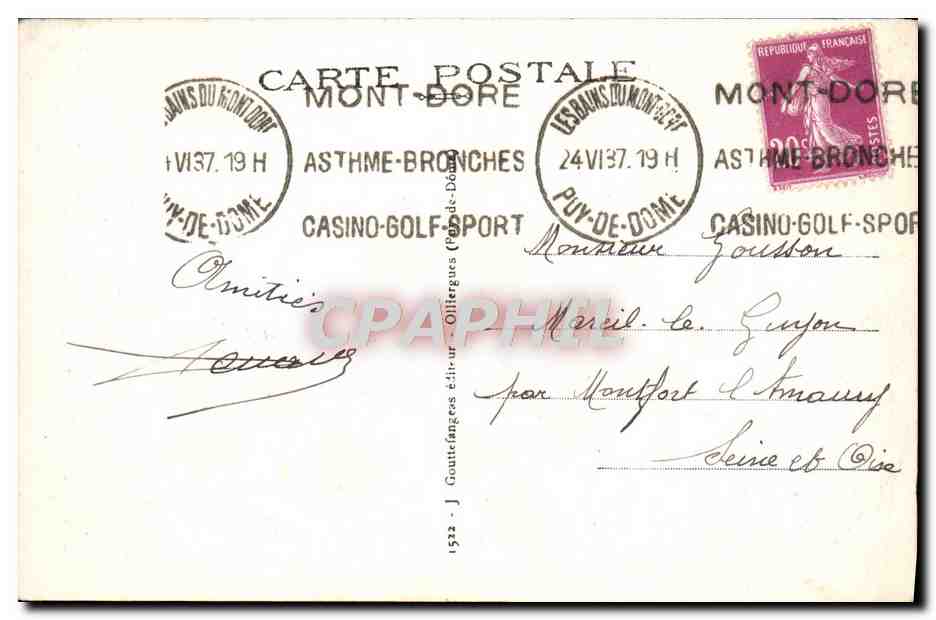 CARTE POSTALE
REPUBLIQUE FRANÇAISE
20c
POSTES
BAINS DU MONT DORE
4 VI 37. 19 H
PUY-DE-DOME
MONT-DORE
ASTHME-BRONCHES
CASINO-GOLF-SPORT
LES BAINS DU MONT DORE
24 VI 37. 19 H
PUY-DE-DOME
MONT-DORE
ASTHME-BRONCHE
CASINO-GOLF-SPOR
Amitiés
1522 - J Gouttefangeas éditeur - Olliergues (Puy-de-Dôme)
Monsieur Gousson
Mareil-le-Guyon
par Montfort l'Amaury
Seine et Oise
CPAPHIL